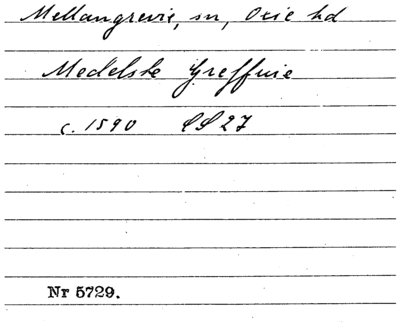 Mellangrevie, sn, Oxie hd
Medelste Greffuie
c. 1590 LS 27
Nr 5729.